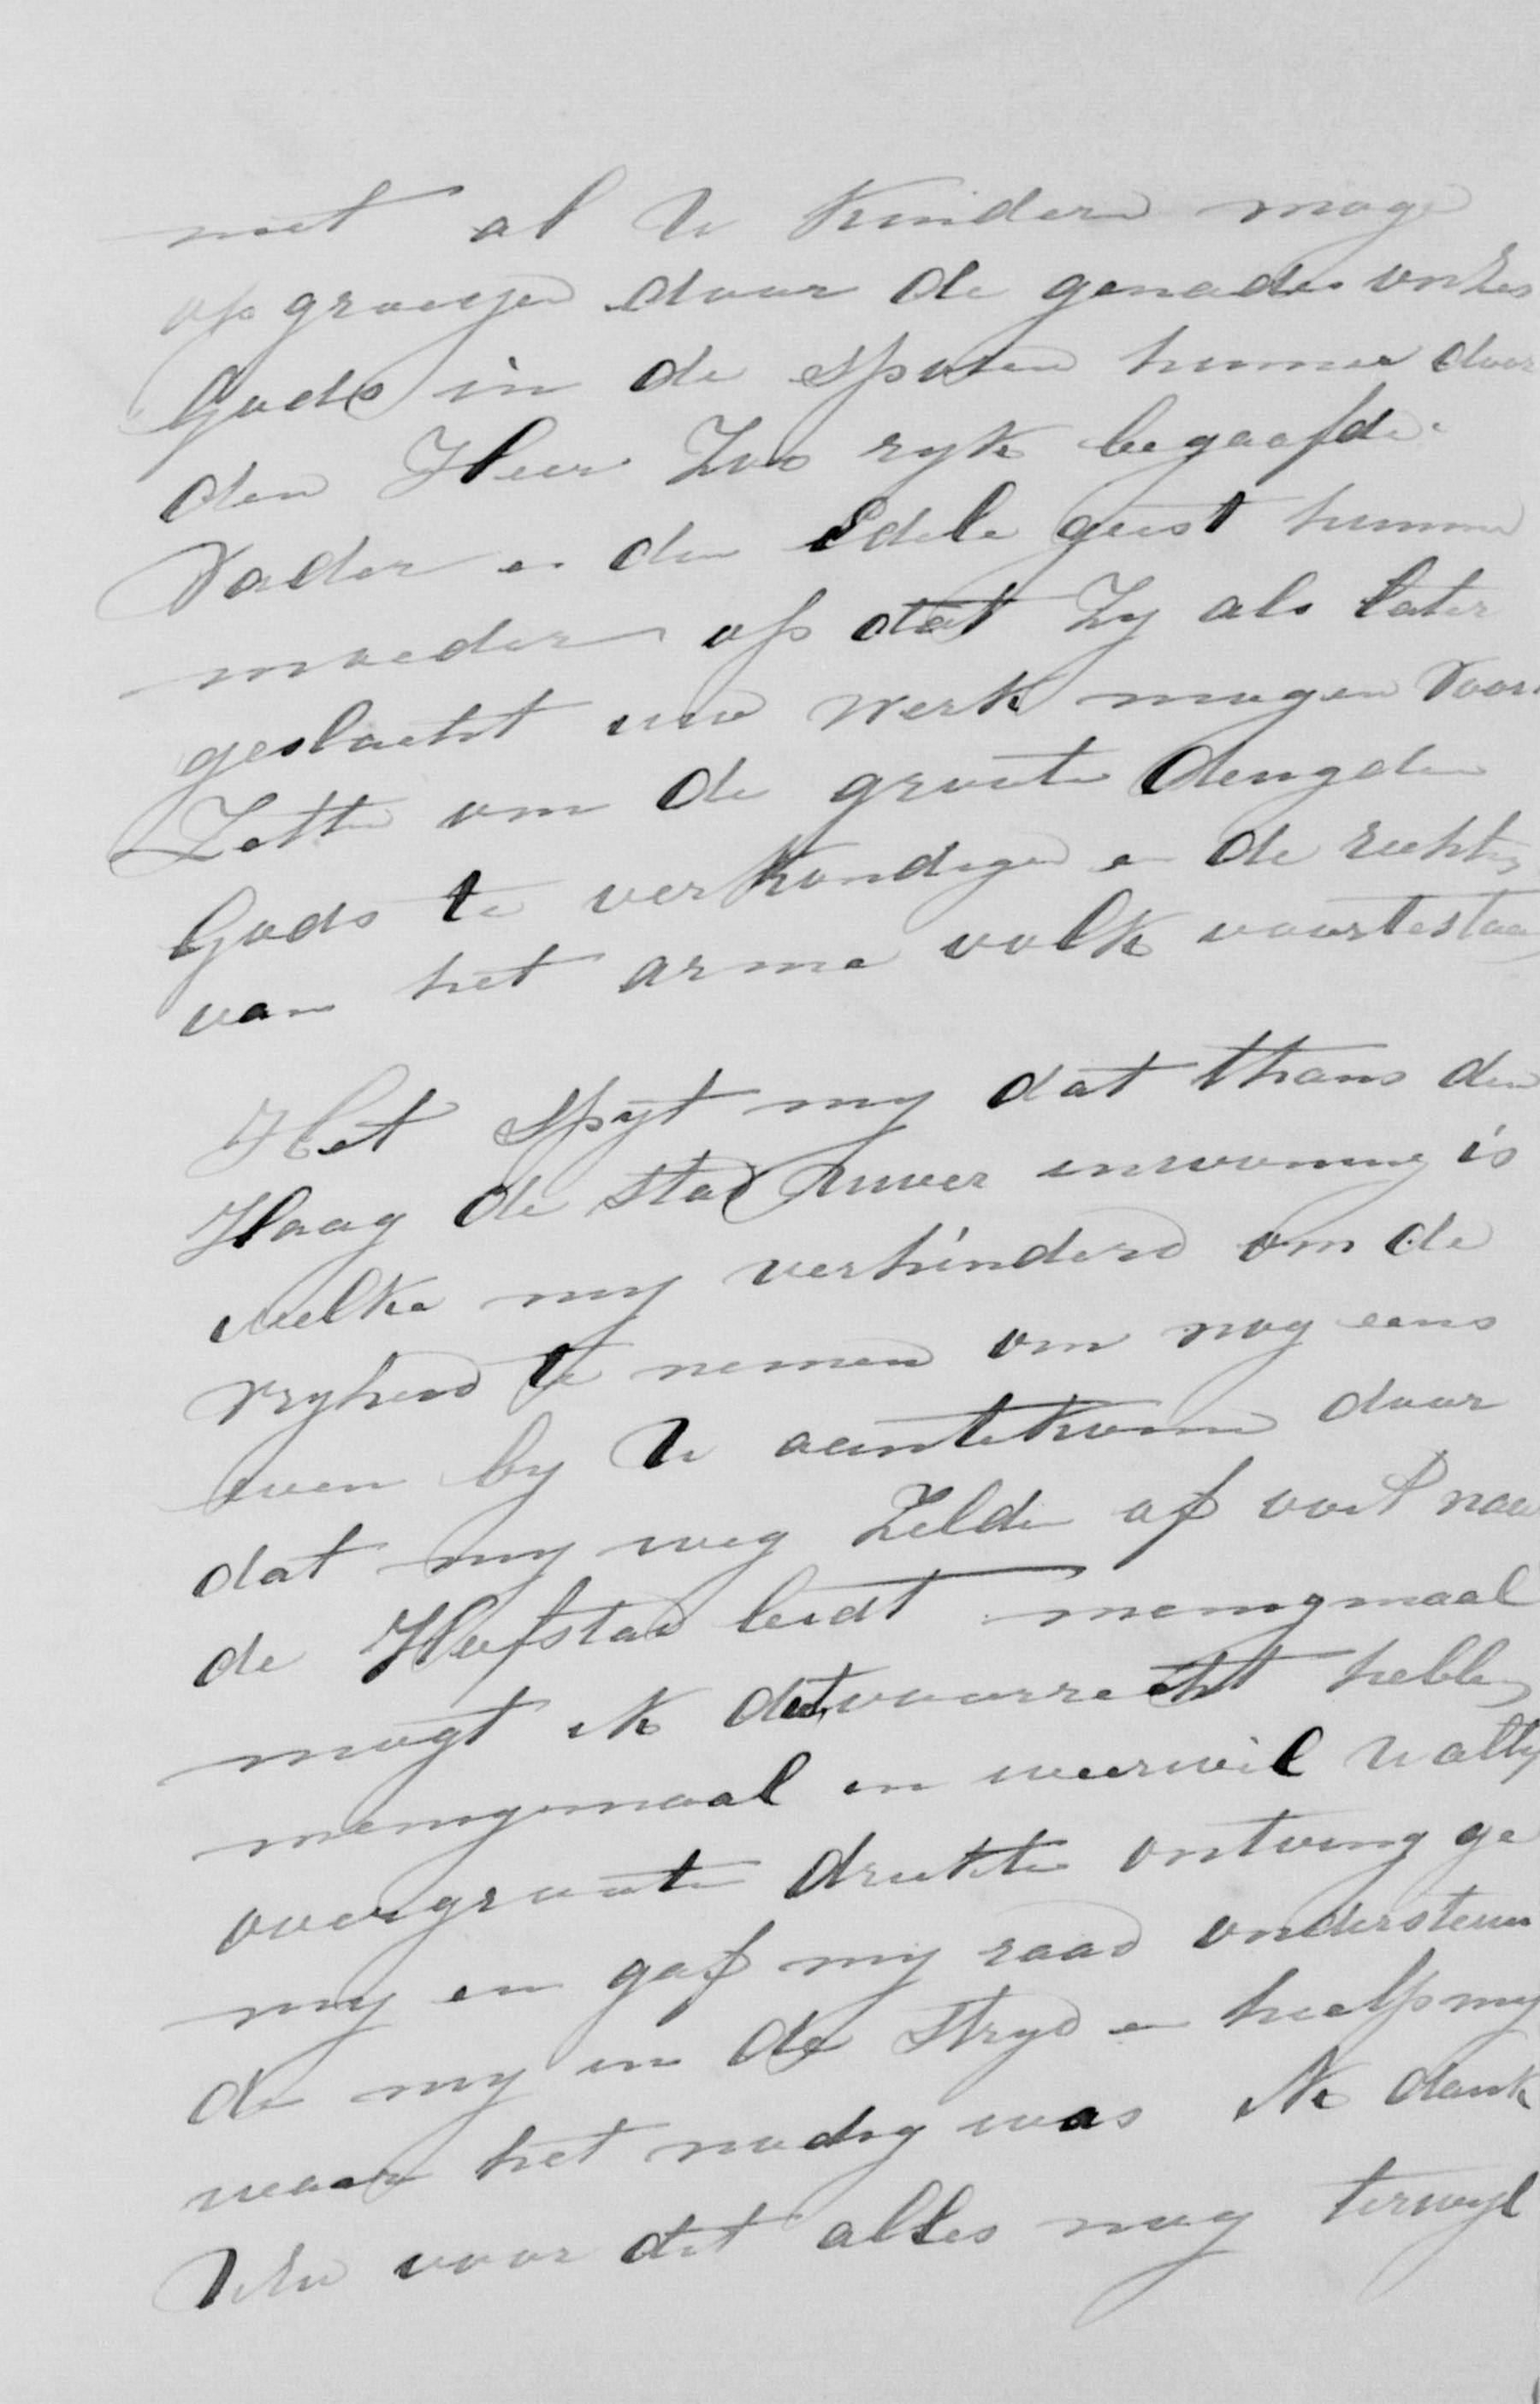 met al U kinderen moge
op groeijen door de genade onzes
Gods in de sporen hunner door
den Heer Zoo ryk begaafde
Vader en den Edele geest hunner
moeder op dat Zy als later
geslacht uw werk mogen Voort
Zetten om de groote deugden
Gods te verkondigen en de rechten
van het arme volk voortestaan
Het spyt my dat thans den
Haag de stad uwer inwoning is
welke my verhinderd om de
vryheid te nemen om nog eens
even by U aantekomen door
dat my weg Zelden of ooit naar
de Hofstad leidt menigmaal
mogt ik dit voorrecht hebben
menigmaal en weerwil U altyd
overgroote drukte ontving ge
my en gaf my raad ondersteun
de my in de stryd en hielp my
waar het nodig was Ik dank
UEd voor dit alles nog terwyl